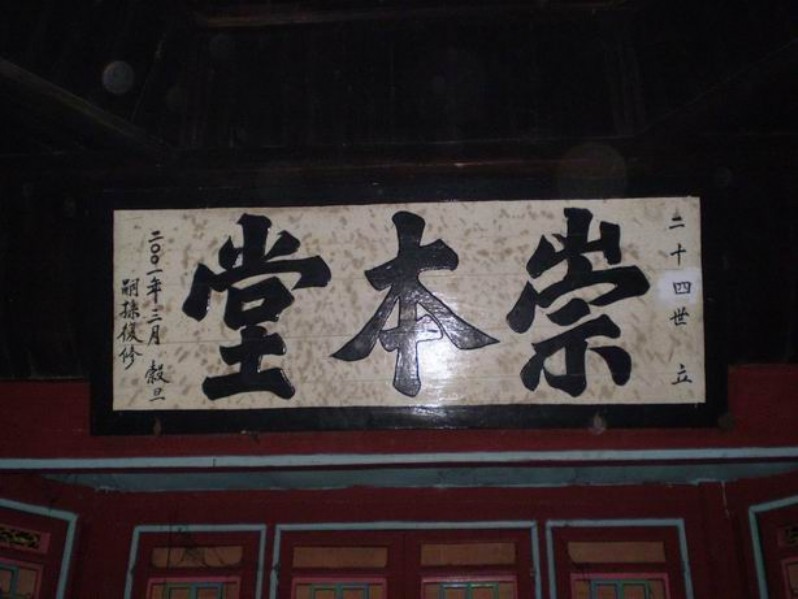 二十四世 立
崇本堂
二〇〇一年三月 榖旦
嗣孫復修